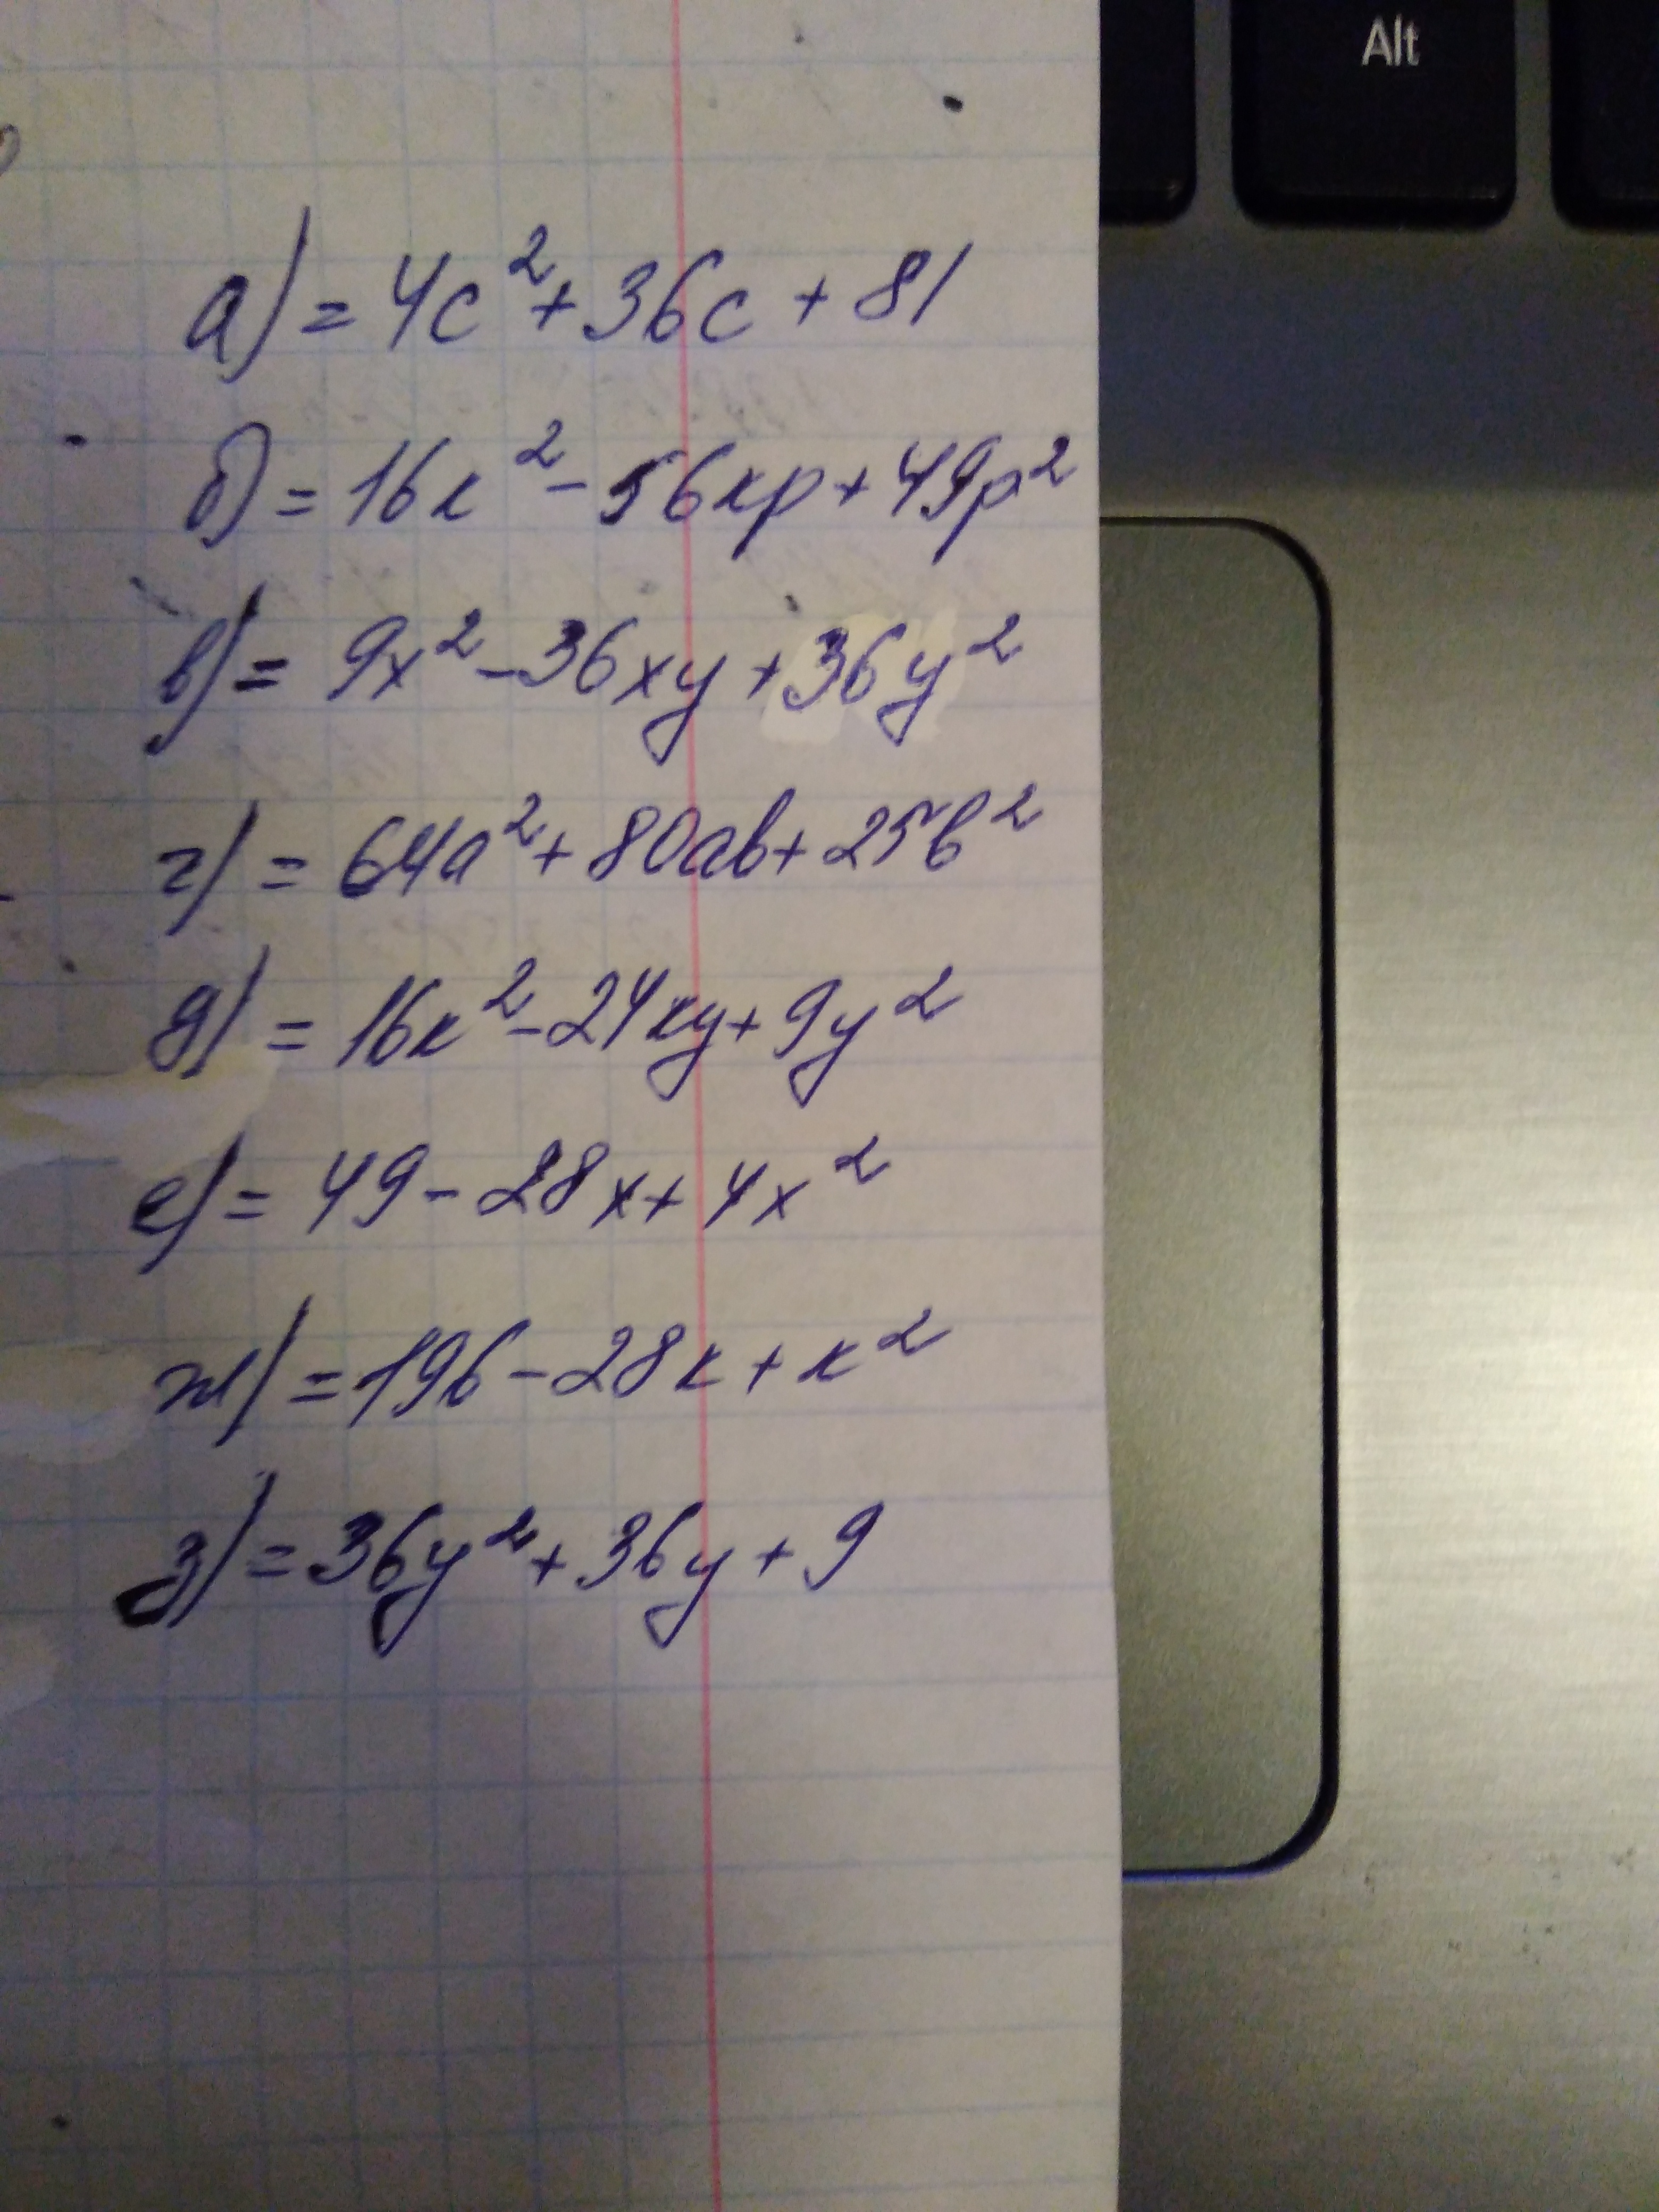 Alt
а) = 4c² + 36c + 81
б) = 16к² - 56кp + 49p²
в) = 9x² - 36xy + 36y²
г) = 64a² + 80ab + 25b²
д) = 16к² - 24кy + 9y²
е) = 49 - 28x + 4x²
ж) = 196 - 28к + к²
з) = 36y² + 36y + 9